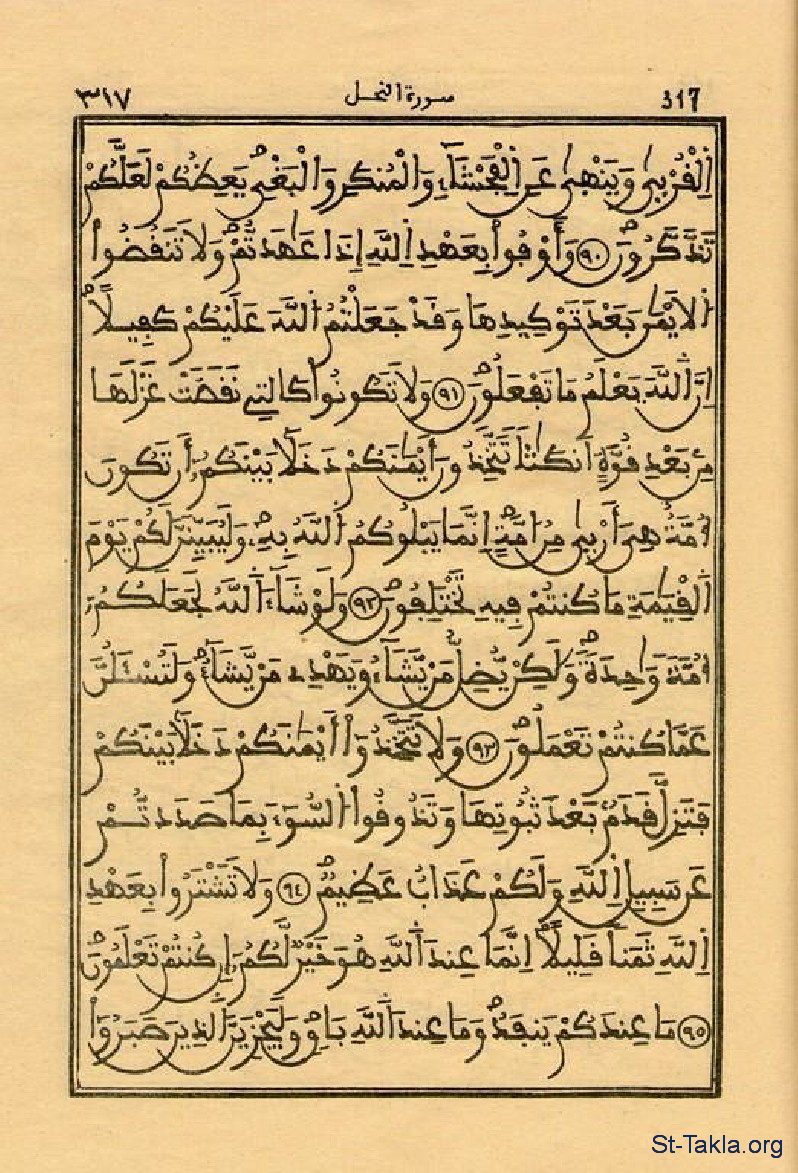 317 سورة النحل ٣١٧
اِ۬لْقُرْبٜىٰ وَيَنْهٜىٰ عَنِ اِ۬لْفَحْشَآءِ وَالْمُنكَرِ وَالْبَغْيِۖ يَعِظُكُمْ لَعَلَّكُمْ
تَذَّكَّرُونَۖ ٩٠ وَأَوْفُواْ بِعَهْدِ اِ۬للَّهِ إِذَا عَٰهَدتُّمْۖ وَلَا تَنقُضُواْ
اُ۬لَايْمَٰنَ بَعْدَ تَوْكِيدِهَا وَقَدْ جَعَلْتُمُ اُ۬للَّهَ عَلَيْكُمْ كَفِيلاًۖ
اِنَّ اَ۬للَّهَ يَعْلَمُ مَا تَفْعَلُونَۖ ٩١ وَلَا تَكُونُواْ كَالتِے نَقَضَتْ غَزْلَهَا
مِنۢ بَعْدِ قُوَّةٍ أَنكَٰثاً تَتَّخِذُونَ أَيْمَٰنَكُمْ دَخَلاَۢ بَيْنَكُمُۥٓ أَن تَكُونَ
أُمَّةٌ هِيَ أَرْبٜىٰ مِنُ ا۟مَّةٍۖ اِنَّمَا يَبْلُوكُمُ اُ۬للَّهُ بِهِۦۖ وَلَيُبَيِّنَنَّ لَكُمْ يَوْمَ
اَ۬لْقِيَٰمَةِ مَا كُنتُمْ فِيهِ تَخْتَلِفُونَۖ ٩٢ وَلَوْ شَآءَ اَ۬للَّهُ لَجَعَلَكُمُۥٓ
أُمَّةً وَٰحِدَةًۖ وَلَٰكِنْ يُّضِلُّ مَنْ يَّشَآءُ وَيَهْدِے مَنْ يَّشَآءُۖ وَلَتُسْـَٔلُنَّ
عَمَّا كُنتُمْ تَعْمَلُونَۖ ٩٣ وَلَا تَتَّخِذُوٓاْ أَيْمَٰنَكُمْ دَخَلاَۢ بَيْنَكُمْ
فَتَزِلَّ قَدَمُۢ بَعْدَ ثُبُوتِهَا وَتَذُوقُواْ اُ۬لسُّوٓءَ بِمَا صَدَدتُّمْ
عَن سَبِيلِ اِ۬للَّهِ وَلَكُمْ عَذَابٌ عَظِيمٌۖ ٩٤ وَلَا تَشْتَرُواْ بِعَهْدِ
اِ۬للَّهِ ثَمَناً قَلِيلاًۖ اِنَّمَا عِندَ اَ۬للَّهِ هُوَ خَيْرٌ لَّكُمُۥٓ إِن كُنتُمْ تَعْلَمُونَۖ
٩٥ مَا عِندَكُمْ يَنفَدُۖ وَمَا عِندَ اَ۬للَّهِ بَاقٍۖ وَلَيَجْزِيَنَّ اَ۬لذِينَ صَبَرُوٓاْ
St-Takla.org